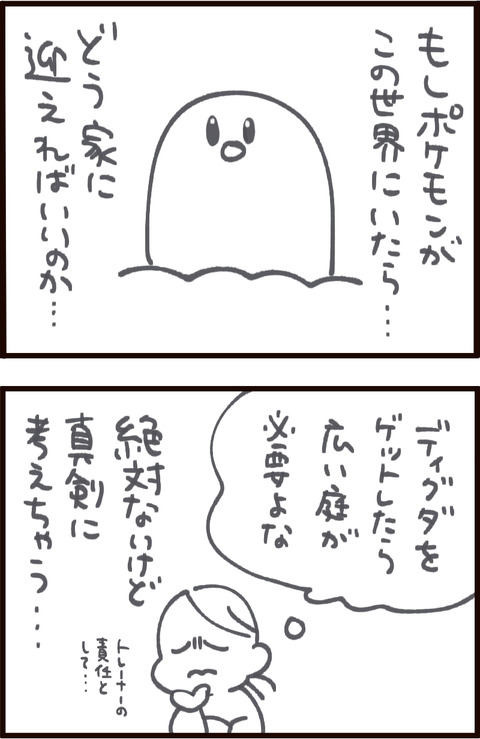 もしポケモンが
この世界にいたら…
どう家に
迎えればいいのか…
ディグダを
ゲットしたら
広い庭が
必要よな
絶対ないけど
真剣に
考えちゃう…
トレーナーの
責任と
して…